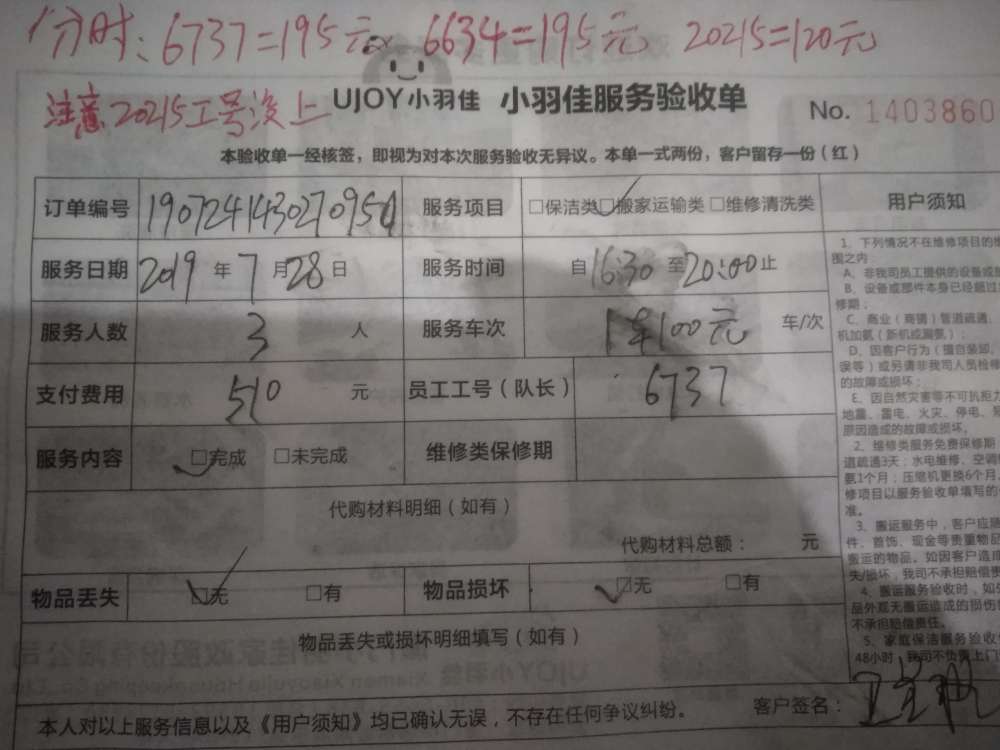 分时:6737=195元 6634=195元 20215=120元
注意20215工号没上
UJOY小羽佳 小羽佳服务验收单
No. 1403860
本验收单一经核签，即视为对本次服务验收无异议。本单一式两份，客户留存一份（红）
订单编号 服务项目 □保洁类 □搬家运输类 □维修清洗类
服务日期 2019年7月28日 服务时间 自16:30至20:00止
服务人数 3人 服务车次 1车100元 车/次
支付费用 510元 员工工号（队长） 6737
服务内容 □完成 □未完成 维修类保修期
代购材料明细（如有）
代购材料总额： 元
物品丢失 □无 □有 物品损坏 □无 □有
物品丢失或损坏明细填写（如有）
本人对以上服务信息以及《用户须知》均已确认无误，不存在任何争议纠纷。
客户签名：
用户须知
1、下列情况不在维修项目的
围之内：
A、非我司员工提供的设备或
B、设备或部件本身已经超过
修期；
C、商业（商铺）管道疏通、
机加氨（新机或漏氨）；
D、因客户行为（擅自装卸、
误等）或另请非我司人员检修
的故障或损坏；
E、因自然灾害等不可抗拒力
地震、雷电、火灾、停电、
原因造成的故障或损坏。
2、维修类服务免费保修期：
道疏通3天；水电维修、空调
氨1个月；压缩机更换6个月，
修项目以服务验收单填写的
准。
3、搬运服务中，客户应
件、首饰、现金等贵重物品
搬运的物品。如因客户造成
失/损坏，我司不承担赔偿责
4、搬运服务验收时，如
品外观无搬运造成的损伤
不承担赔偿责任。
5、家庭保洁服务验收
48小时，我司不负责上门